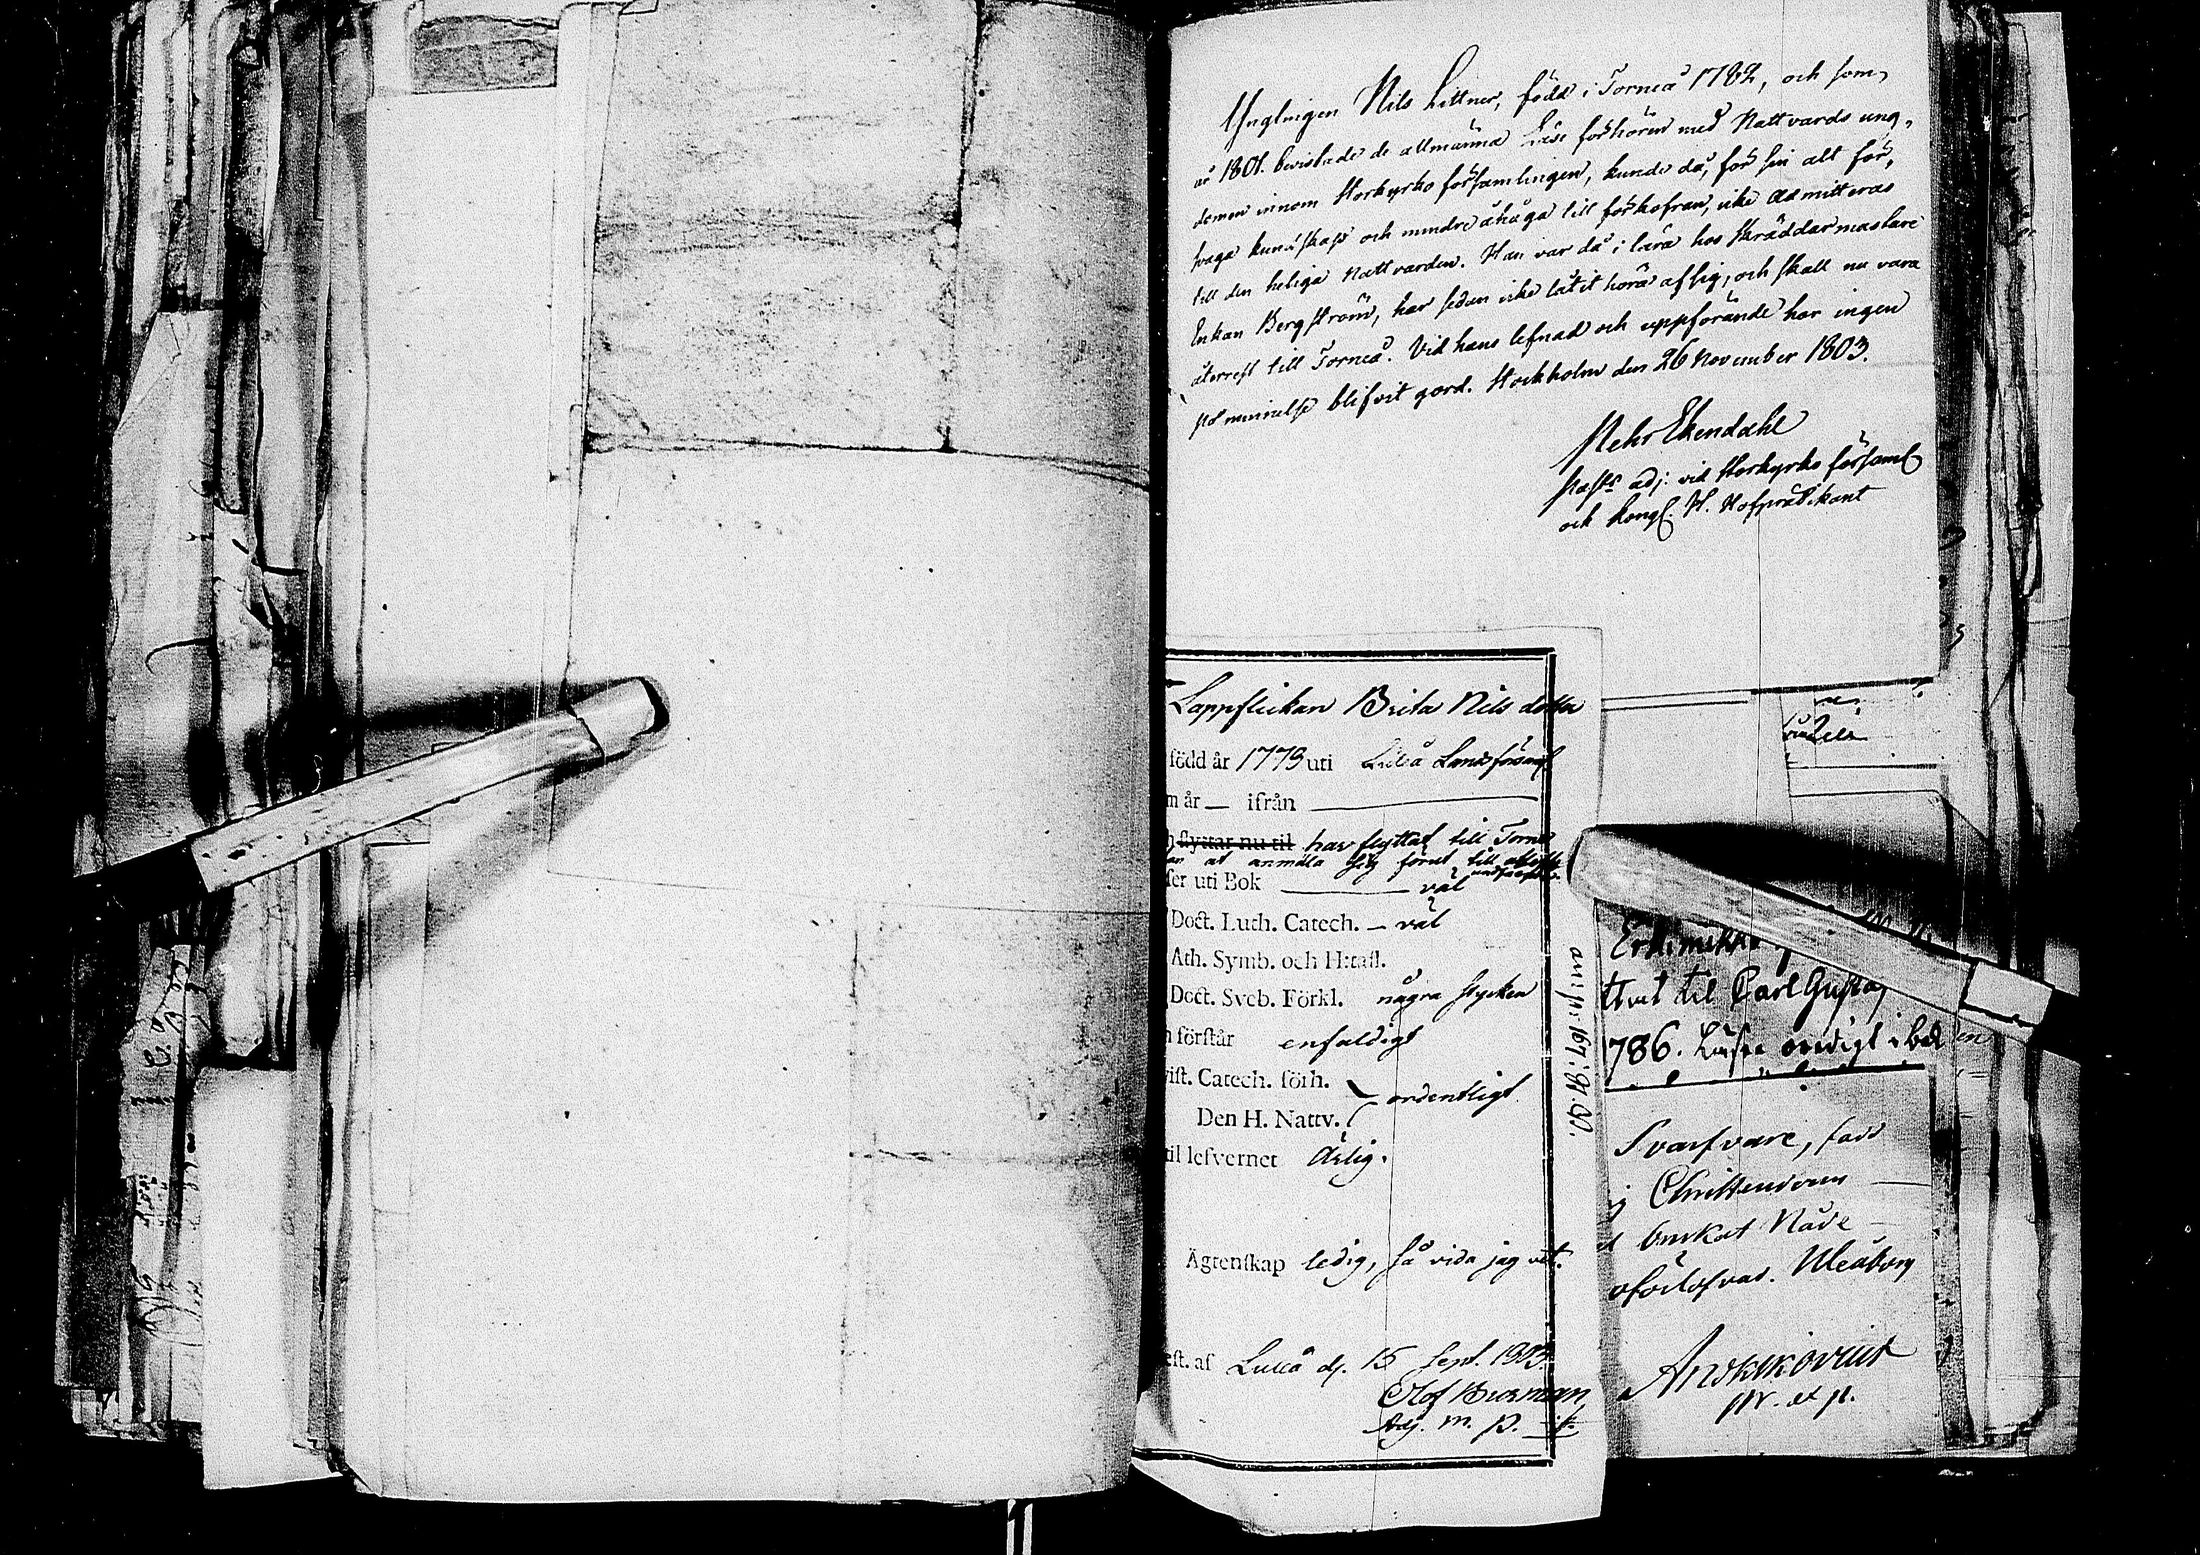 Ynglingen Nils Littner, född i Torneå 1782, och som,
år 1801. bevistade de allmänna Läse förhören med Nattvards ung,
domen innom Storkyrko församlingen, kunde då, för sin alt för,
svaga kunskap och mindre åhåga till förkofran, icke admitteras
till den heliga Nattvarden. Han var då i lära hos Skräddarmästare
Enkan Bergström, har sedan icke låtit höra af sig, och skall nu vara
återrest till Torneå. Vid hans lefnad och uppförande har ingen
påminnelse blifvit gjord. Stockholm den 26 November 1803.
Pehr Ekendahl
Past: adj: vid Storkyrko församl
och Kongl. H. Hofpredikant
Lappflickan Brita Nils dotter
född år 1773 uti Luleå Landsförsaml
m år — ifrån
flyttar nu til har flyttat till Torne
at anmäla sig förut till
ser uti Bok väl
Doct. Luth. Catech. — väl
Ath. Symb. och H:tafl.
Doct. Sveb. Förkl. några stycken
förstår enfaldigt
vist. Catech. förh.
ordentligt.
Den H. Nattv.
til lefvernet Ärlig.
Ägtenskap ledig, så vida jag vet.
est. af Luleå d. 15 Sept. 1803
Olof Burman
Adj. m. p.
ann. p: 167.
Erkimikko
til Carl Gustaf
786. Läser ordigt i bok
Svarfvare, född
Christendom
önskat Nåde
oförlofvad. Uleåborg